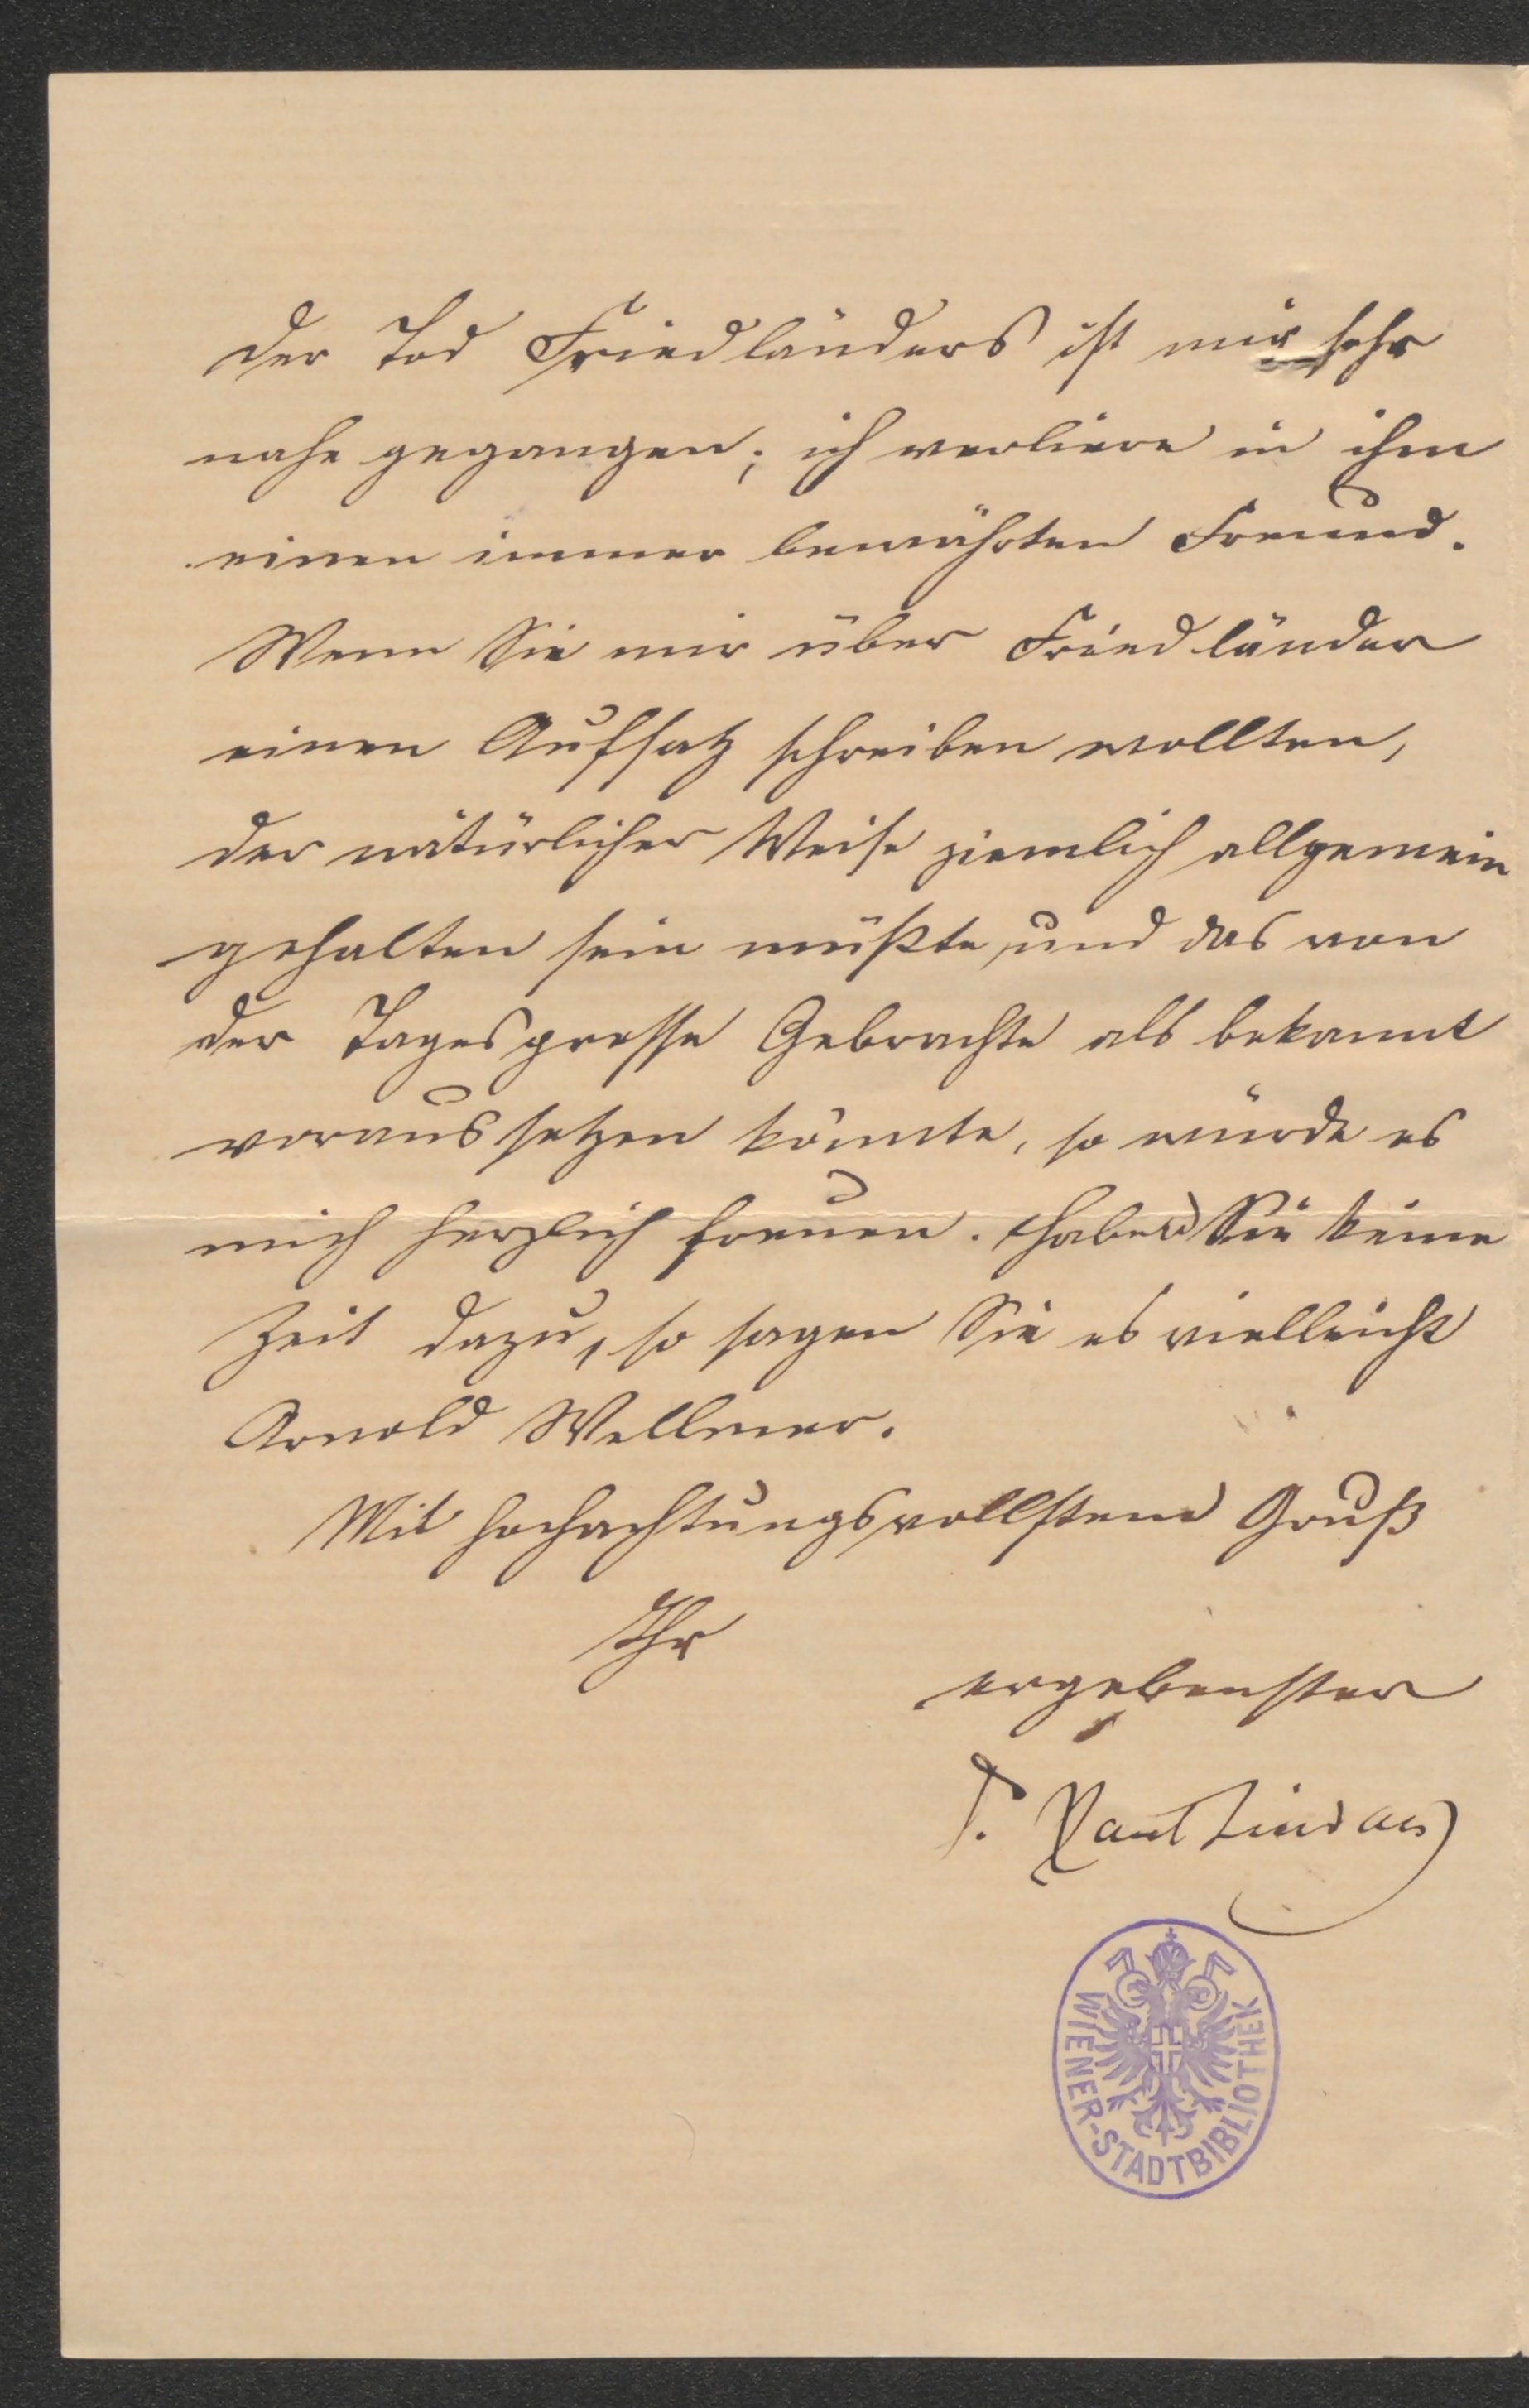 Der Tod Friedländers ist mir sehr
nahe gegangen; ich verliere in ihm
einen immer bewährten Freund.
Wenn Sie mir über Friedländer
einen Aufsatz schreiben wollten,
der natürlicher Weise ziemlich allgemein
gehalten sein müßte und das von
der Tagespresse Gebrachte als bekannt
voraussetzen könnte, so würde es
mich herzlich freuen. Haben Sie keine
Zeit dazu, so sagen Sie es vielleicht
Arnold Wellmer.
Mit hochachtungsvollstem Gruß
Ihr
ergebenster
Paul Lindau
WIENER-STADTBIBLIOTHEK